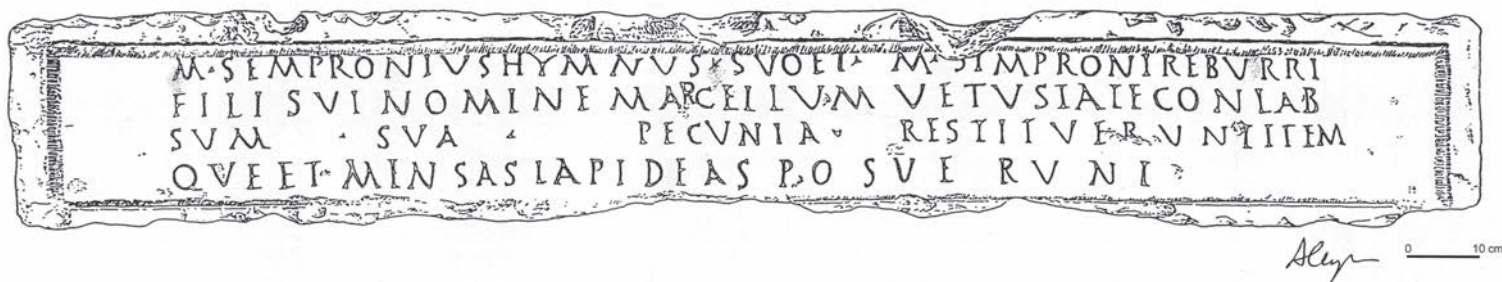 M · SEMPRONIVS HYMNVS · SVO ET · M · SEMPRONI REBVRRI
FILI SVI NOMINE MARCELLVM VETVSTATE CONLAB
SVM · SVA · PECVNIA · RESTITVERVNT ITEM
QVE ET · MENSAS LAPIDEAS POSVERVNT
0 10 cm